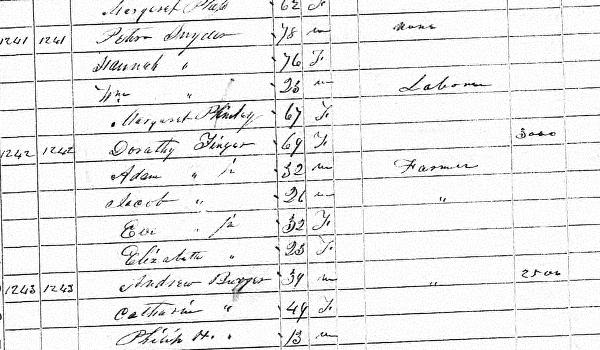 Margaret 62 F
1241 1241 Peter Snyder 78 m none
Hannah " 76 F
Wm " 23 m Laborer
Margaret 67 F
1242 1242 Dorathy Finger 69 F 3000
Adam " Jr 32 m Farmer
Jacob " 26 m "
Eve " Jr 32 F
Elizabeth " 23 F
1243 1243 Andrew Burger 39 m " 2500
Catharine " 49 F
Philip H. " 13 m